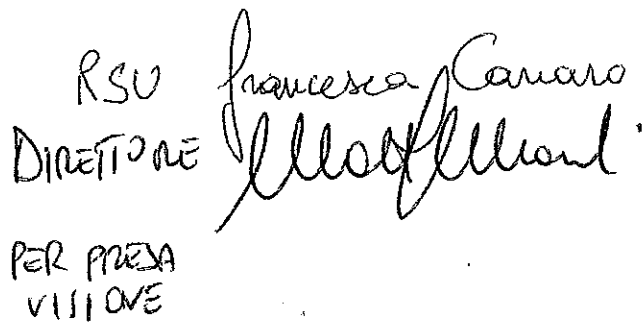 RSU Francesca Canaro
DIRETTORE
PER PRESA
VISIONE